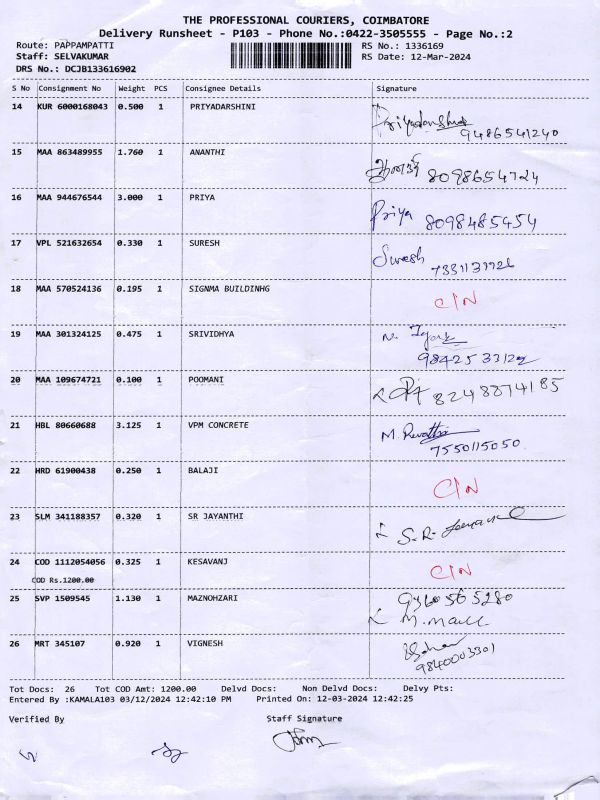 THE PROFESSIONAL COURIERS, COIMBATORE
Delivery Runsheet - P103 - Phone No.:0422-3505555 - Page No.:2
Route: PAPPAMPATTI RS No.: 1336169
Staff: SELVAKUMAR RS Date: 12-Mar-2024
DRS No.: DCJB133616902
S No Consignment No Weight PCS Consignee Details Signature
14 KUR 6000168043 0.500 1 PRIYADARSHINI Priyadarshini
9486541240
15 MAA 863489955 1.760 1 ANANTHI ஆனந்தி 8098654724
16 MAA 944676544 3.000 1 PRIYA Priya 8098485454
17 VPL 521632654 0.330 1 SURESH Suresh
18 MAA 570524136 0.195 1 SIGNMA BUILDINHG C/N
19 MAA 301324125 0.475 1 SRIVIDHYA
20 MAA 109674721 0.100 1 POOMANI 8248874185
21 HBL 80660688 3.125 1 VPM CONCRETE M. Revathi
7550115050
22 HRD 61900438 0.250 1 BALAJI C/N
23 SLM 341188357 0.320 1 SR JAYANTHI S.R.
24 COD 1112054056 0.325 1 KESAVANJ C/N
COD Rs.1200.00
25 SVP 1509545 1.130 1 MAZNOHZARI 9360565280
26 MRT 345107 0.920 1 VIGNESH
9840003301
Tot Docs: 26 Tot COD Amt: 1200.00 Delvd Docs: Non Delvd Docs: Delvy Pts:
Entered By :KAMALA103 03/12/2024 12:42:10 PM Printed On: 12-03-2024 12:42:25
Verified By Staff Signature